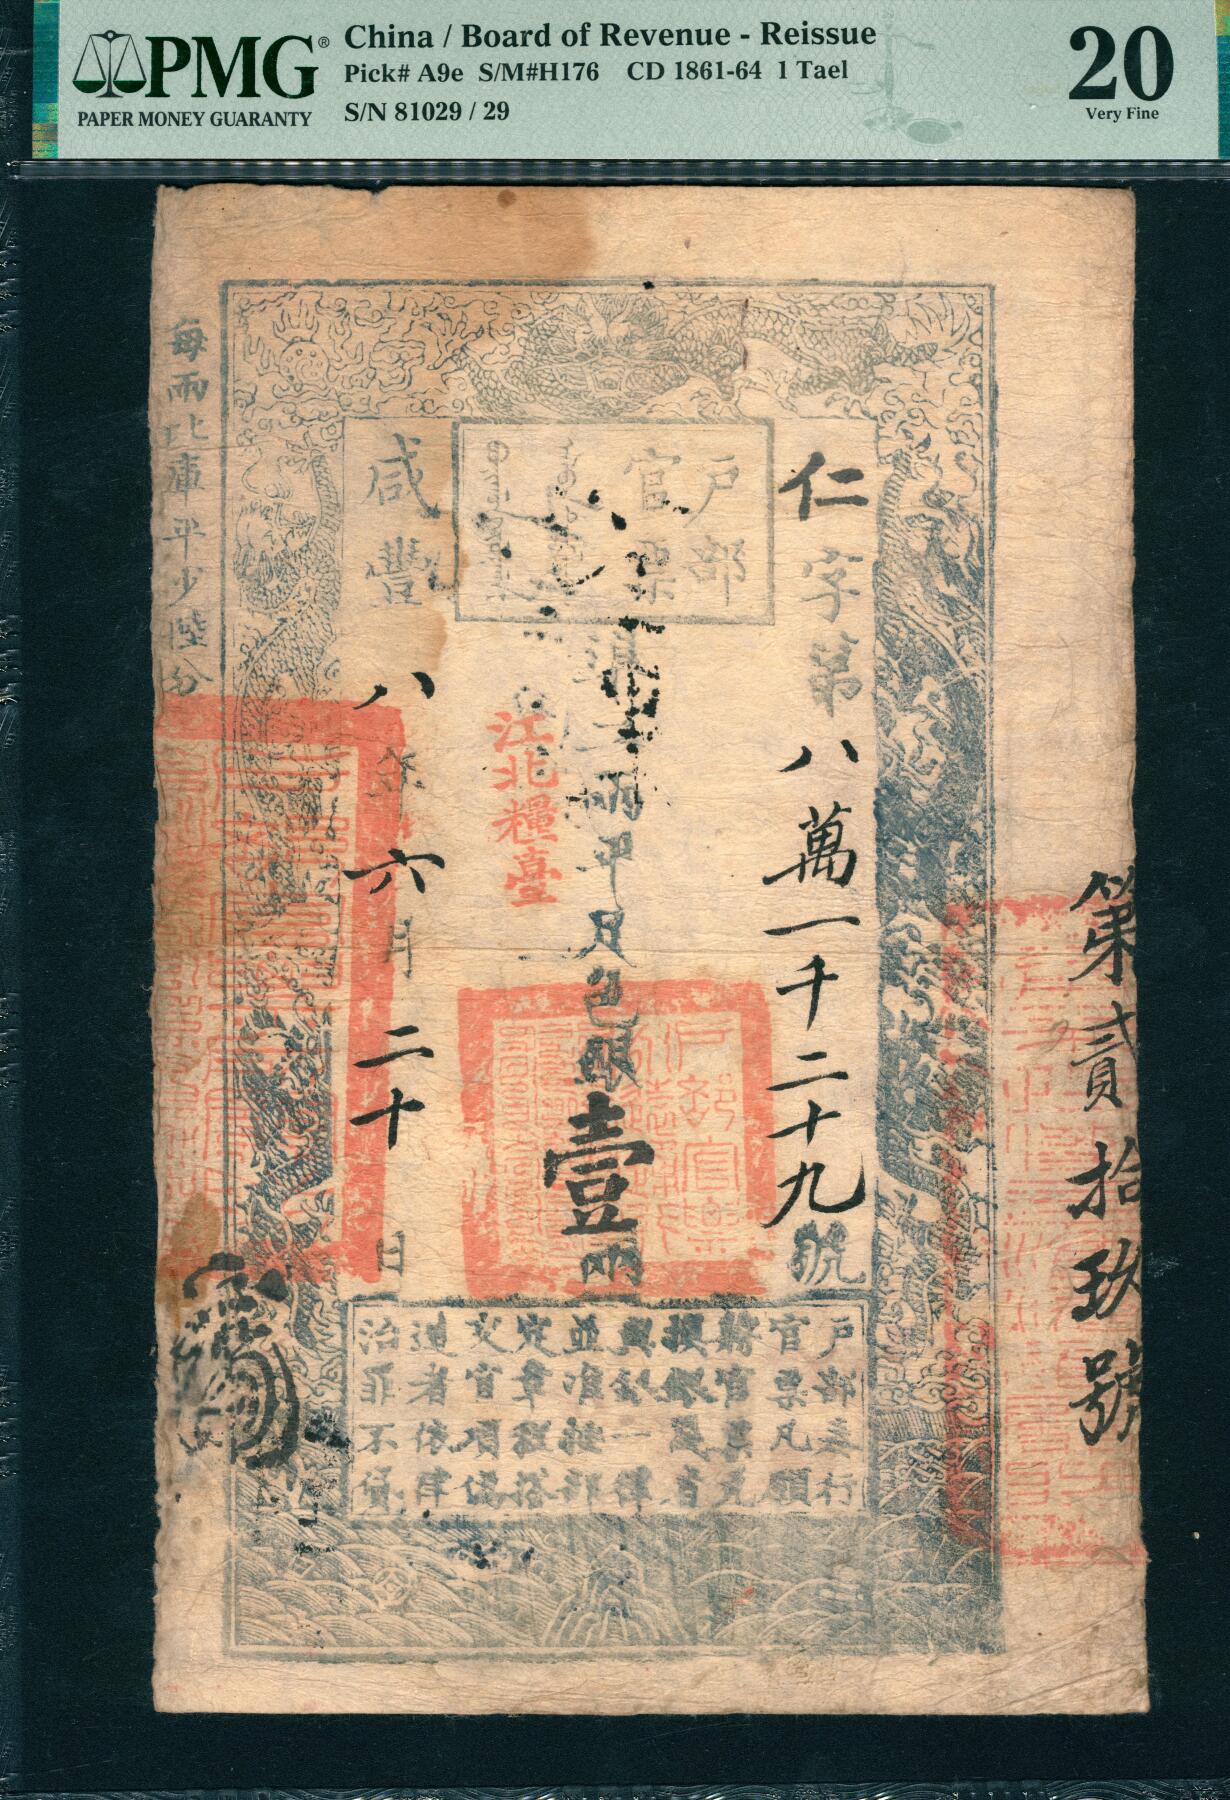 PMG®
PAPER MONEY GUARANTY
China / Board of Revenue - Reissue
Pick# A9e S/M#H176 CD 1861-64 1 Tael
S/N 81029 / 29
20
Very Fine
第貳拾玖號
仁字第八萬一千二十九號
戶部
官票
兩平足色銀壹兩
江北糧臺
咸豐八年六月二十日
每兩比庫平少陸分
戶部奏行
官票凡願
將官票兌
換銀錢者
與銀一律
並准按部
定章程搭
交官項偽
造者依律
治罪不貸